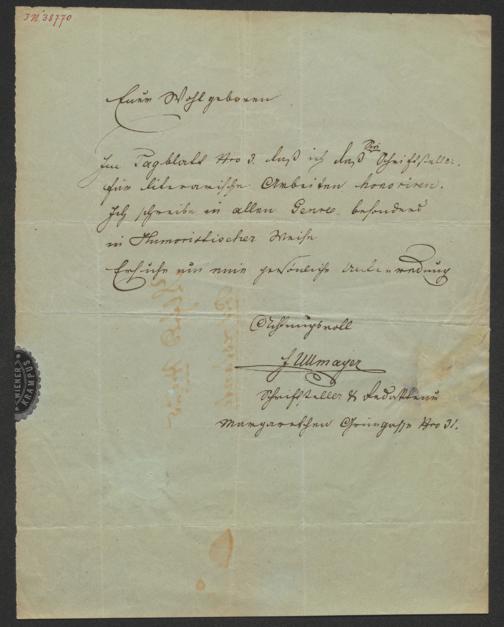 I.N. 38770
Euer Wohlgeboren
Im Tagblatt Nro 3. daß ich daß Sie Schriftsteller.
für literarische Arbeiten honoriren.
Ich schreibe in allen Genre, besonders
in Humoristischer Weise
Ersuche um eine persönliche Unterredung
Achtungsvoll
F Ullmayer
Schriftsteller & Redakteur
Margarethen Grüngasse Nro 31.
WIENER
KRAMPUS